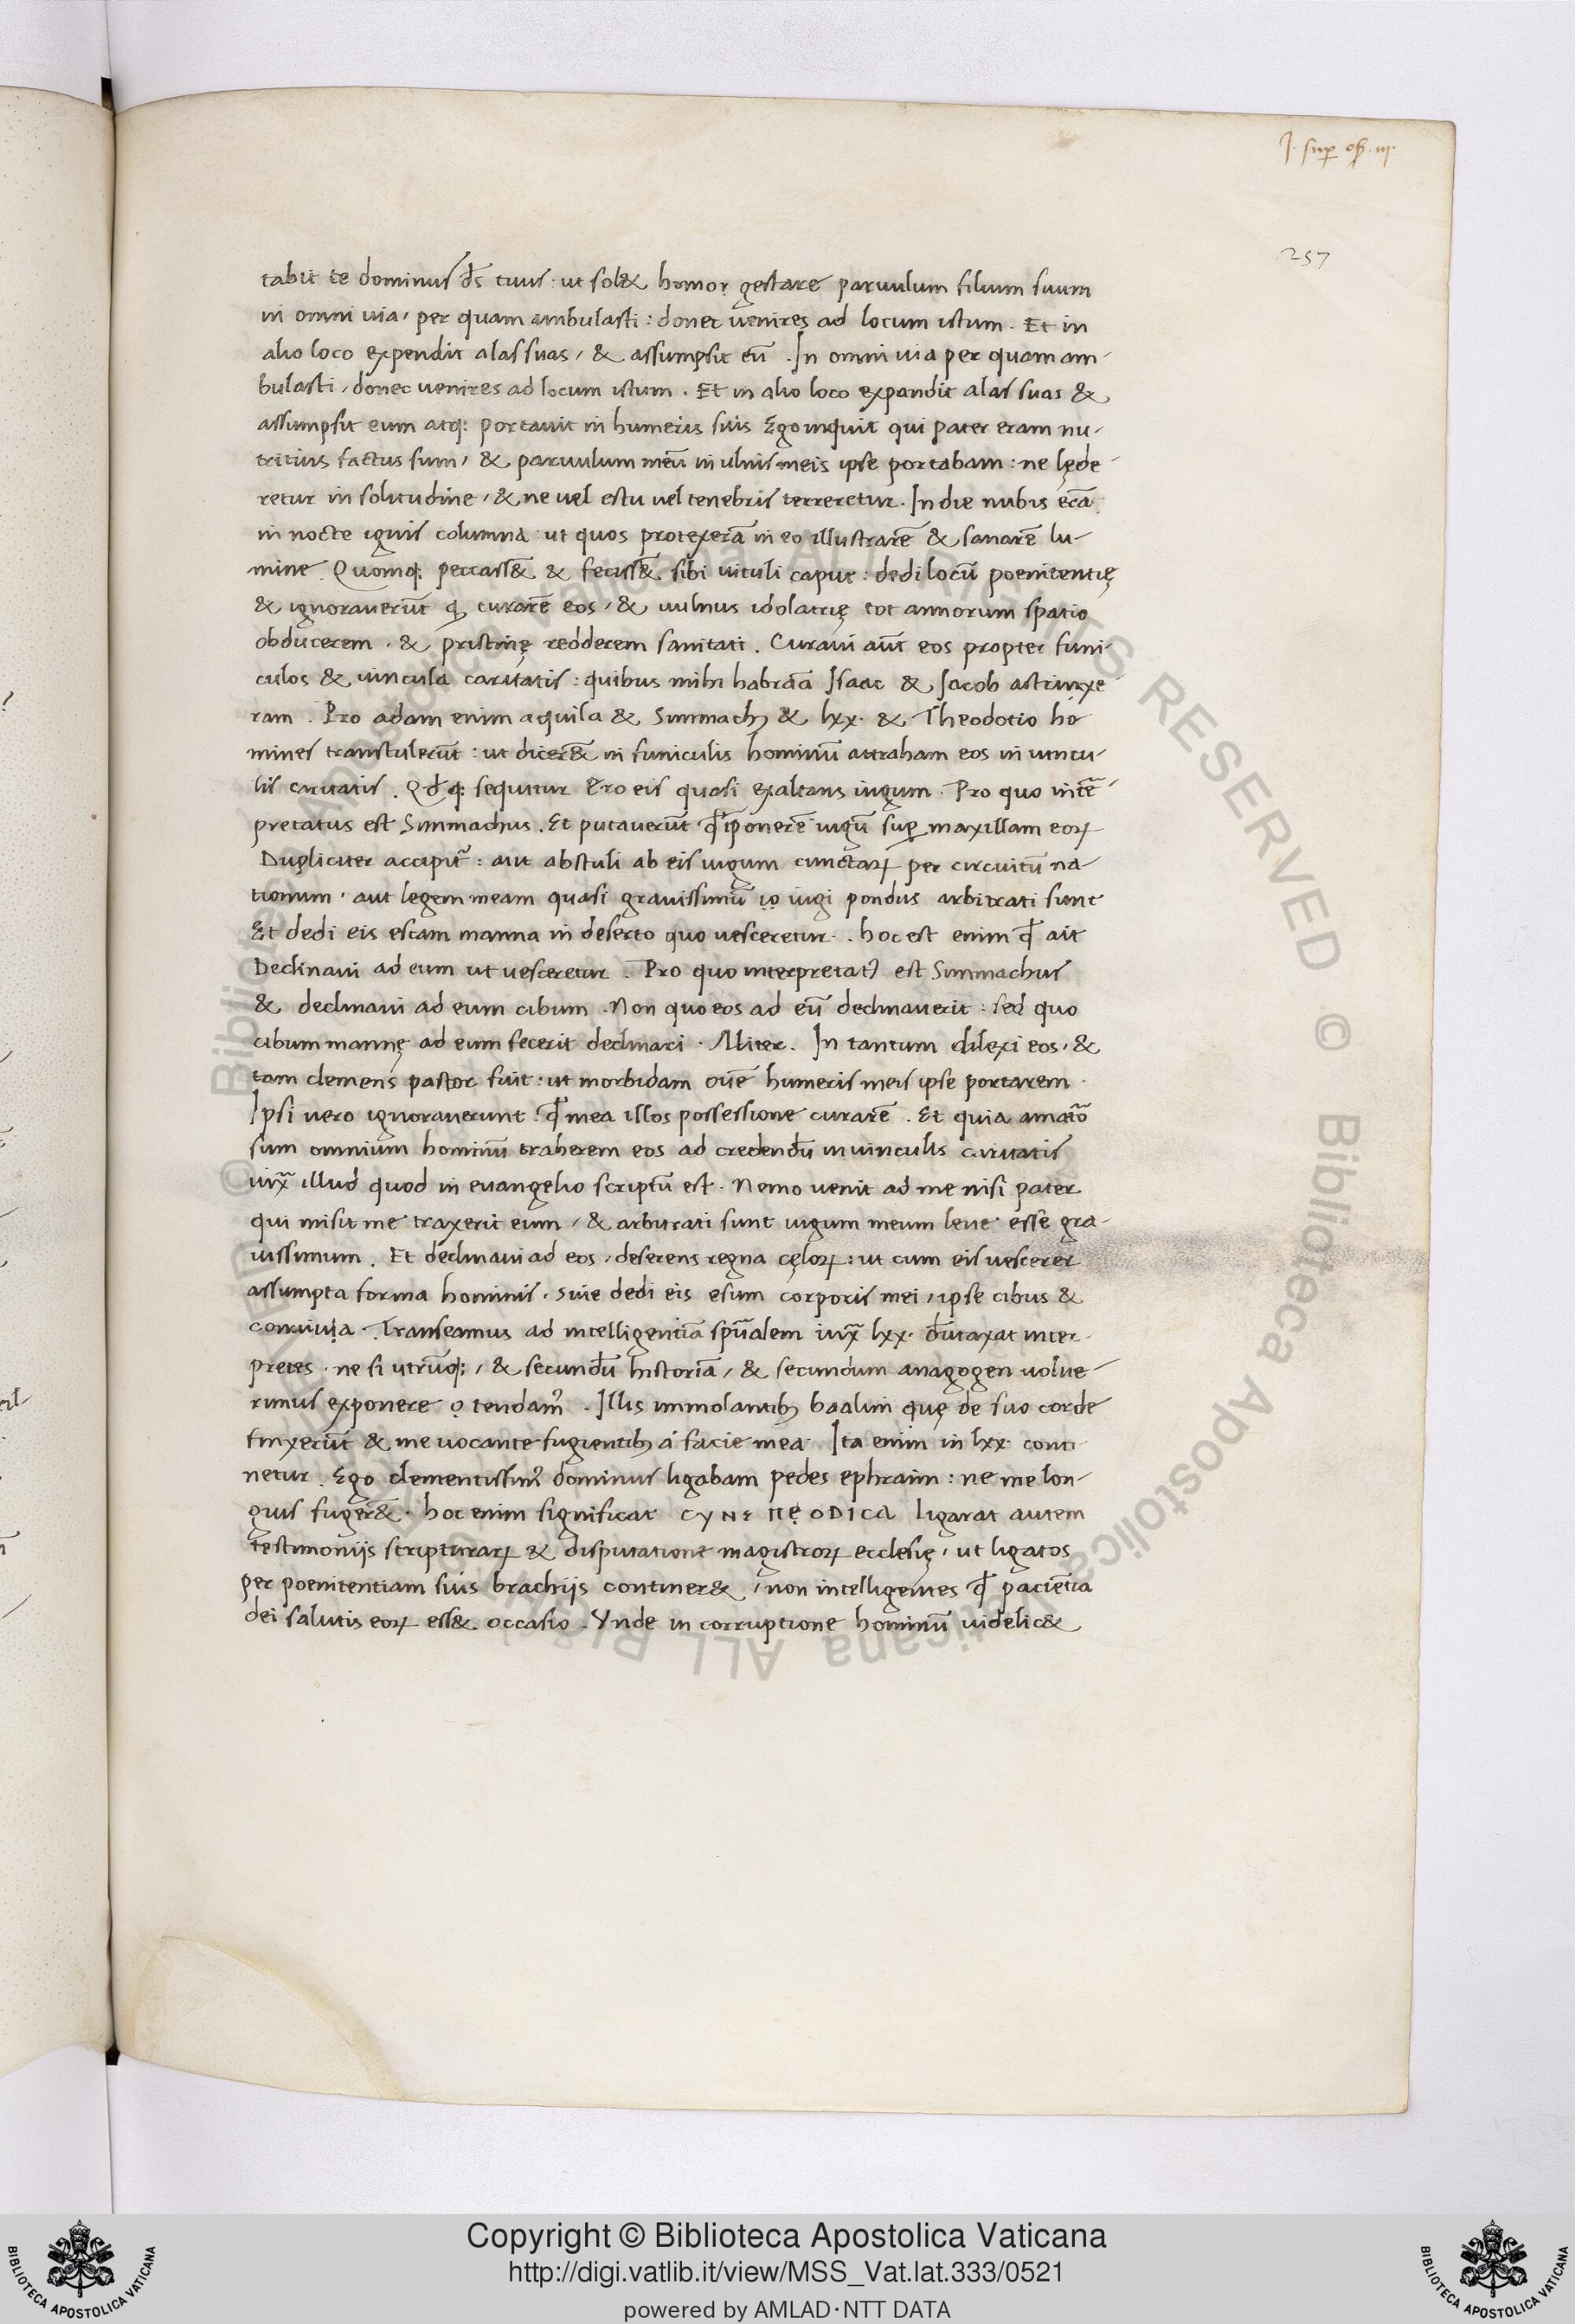 J. sup os̄. iij.
257
tabit te dominus ds̄ tuus · ut sol& homo gestare paruulum filium suum
in omni uia, per quam ambulasti : donec uenires ad locum istum . Et in
alio loco expendit alas suas, & assumpsit eū . In omni uia per quam am-
bulasti, donec uenires ad locum istum . Et in alio loco expandit alas suas &
assumpsit eum atq; portauit in humeris suis Ego inquit qui pater eram nu-
tritius factus sum, & paruulum meū in ulnis meis ipse portabam : ne lęde-
retur in solitudine, & ne uel estu uel tenebris terreretur . In die nubis erā
in nocte ignis columna ut quos protexerā in eo illustrarē & sanarē lu-
mine . Quomq; peccass& & feciss& sibi uituli caput : dedi locū poenitentię
& ignorauerūt ꝙ curarē eos, & uulnus idolatrię tot annorum spatio
obducerem . & pristinę redderem sanitati . Curaui aūt eos propter funi-
culos & uincula caritatis : quibus mihi habraā Isaac & Jacob astrinxe-
ram . Pro adam enim aquila & Simmachꝰ & lxx . & Theodotio ho-
mines transtulerūt : ut dicer& in funiculis hominū attraham eos in uincu-
lis caritatis . Qđq; sequitur Ero eis quasi exaltans iugum . Pro quo intē-
pretatus est Simmachus . Et putauerūt ꝙ īponerē iugū suꝑ maxillam eoꝝ
Dupliciter accipit᷑ : aut abstuli ab eis iugum cunctaꝝ per circuitū na-
tionum, aut legem meam quasi grauissimū io iugi pondus arbitrati sunt
Et dedi eis escam manna in deserto quo uesceretur . hoc est enim ꝙ ait
Declinaui ad eum ut uesceretur . Pro quo interpretatꝰ est Simmachus
& declinaui ad eum cibum . Non quo eos ad eū declinauerit : sed quo
cibum mannę ad eum fecerit declinari . Aliter . In tantum dilexi eos, &
tam clemens pastor fui : ut morbidam ouē humeris meis ipse portarem .
Ipsi uero ignorauerunt ꝙ mea illos possessione curarē . Et quia amator
sum omnium hominū traherem eos ad credendū in uinculis caritatis
iux̄ illud quod in euangelio scriptū est . Nemo uenit ad me nisi pater
qui misit me traxerit eum, & arbitrati sunt iugum meum leue esse gra-
uissimum . Et declinaui ad eos, deserens regna cęloꝝ : ut cum eis uescerer
assumpta forma hominis . siue dedi eis esum corporis mei, ipse cibus &
conuiuia . Transeamus ad intelligentiā spūalem iux̄ lxx . dūtaxat inter-
pretes . ne si utrūq;, & secundū historiā, & secundum anagogen uolue-
rimus exponere o tendamꝰ . Illis immolantibꝫ baalim quę de suo corde
finxerūt & me uocante fugientibꝫ á facie mea Ita enim in lxx conti-
netur . Ego clementissimꝰ dominus ligabam pedes ephraim : ne me lon-
gius fuger& . hoc enim significat CYNEΠEODICA ligarat autem
testimoniis scripturaꝝ & disputatione magistroꝝ ecclesię, ut ligatos
per poenitentiam suis brachiis continer&, non intelligentes ꝙ pacientia
dei salutis eoꝝ ess& occasio . Vnde in corruptione hominū uidelic&
Copyright © Biblioteca Apostolica Vaticana
http://digi.vatlib.it/view/MSS_Vat.lat.333/0521
powered by AMLAD·NTT DATA
BIBLIOTECA APOSTOLICA VATICANA
BIBLIOTECA APOSTOLICA VATICANA